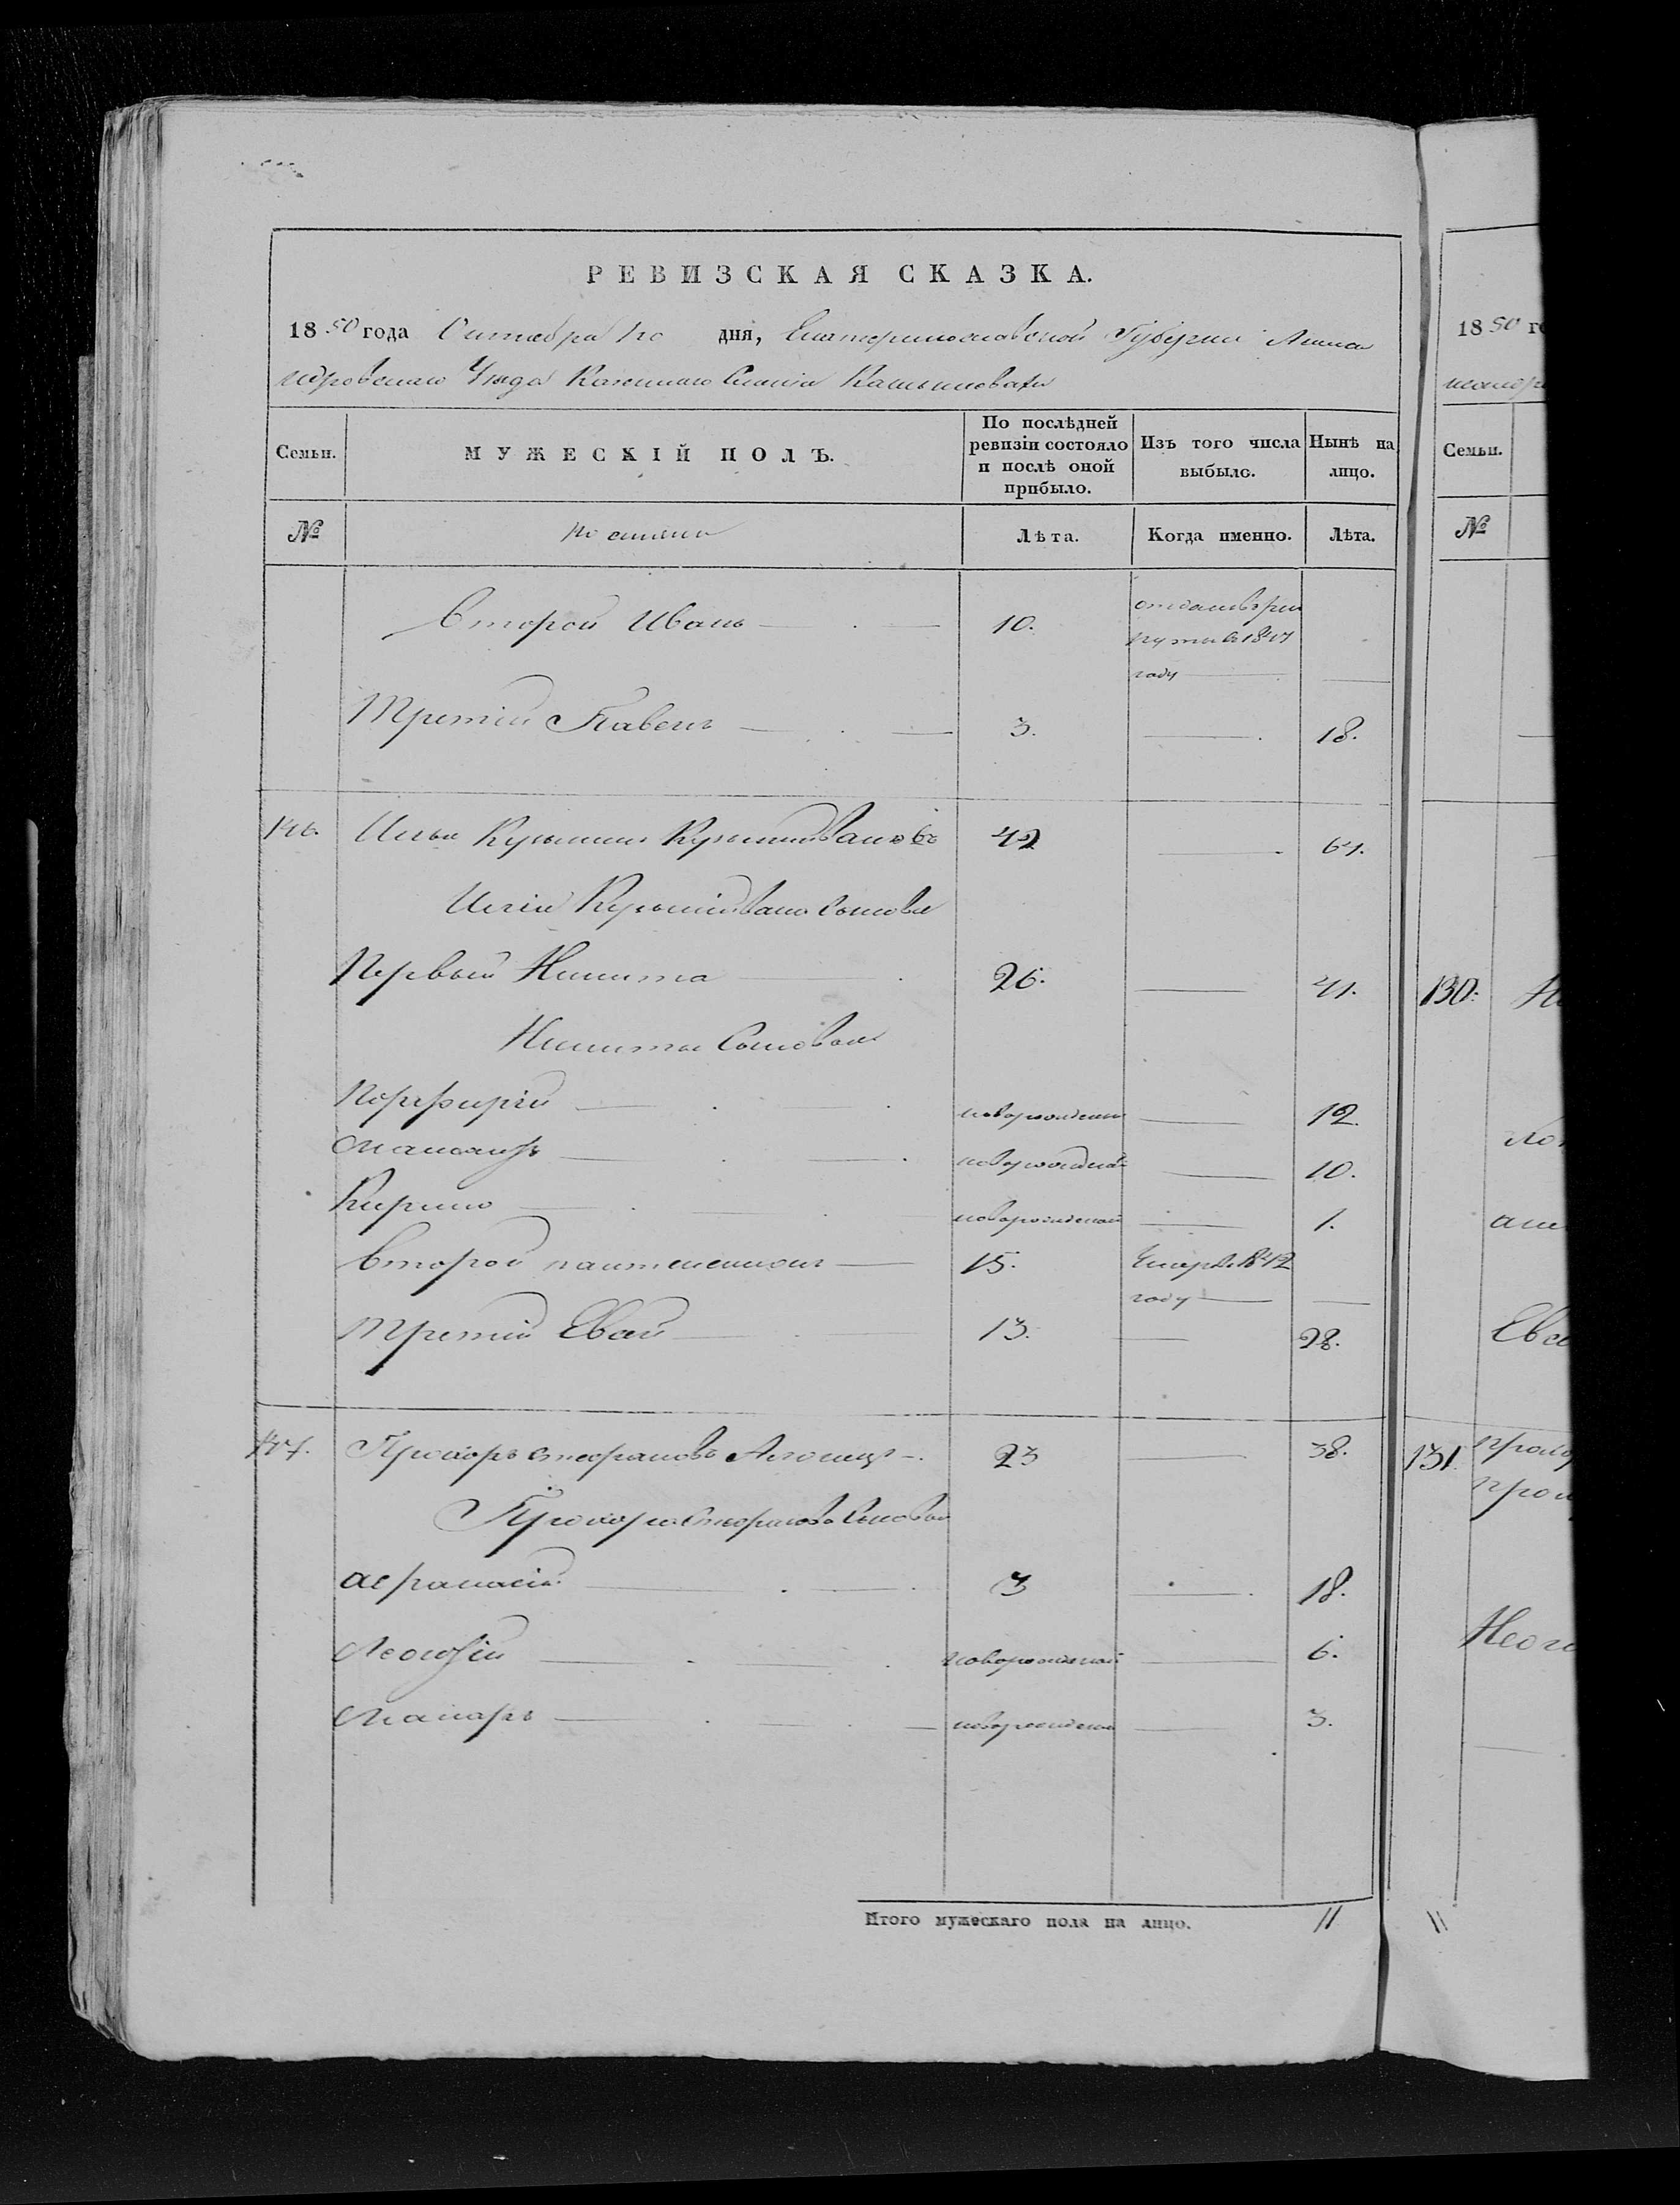 РЕВИЗСКАЯ СКАЗКА.
1850 года Октября дня, Екатеринославской Губернии Алекса
ндровскаго Уезда Казеннаго Селенія
Семьи. МУЖЕСКІЙ ПОЛЪ. По послѣдней ревизіи состояло и послѣ оной прибыло. Изъ того числа выбыло. Нынѣ на лицо.
№ Лѣта. Когда именно. Лѣта.
Второй Иванъ 10. отданъ в рек
руты в 1847
году
Третій Павелъ 3. 18.
146. Илья 42 64.
Сыновья
Первый Никита 26. 41.
Никиты Сыновья
Порфирій новорожденный 12.
новорожденный 10.
Кирило новорожденный 1.
Второй Пантелеимонъ 15. Умеръ в 1842
году
Третій 13. 28.
147. Прохоръ Стефановъ 23 38.
Прохора Стефанова Сыновья
Афанасій 3 18.
новорожденный 6.
Макаръ новорожденный 3.
Итого мужескаго пола на лицо. 11
1850 го
Семьи.
№
130.
131.
11